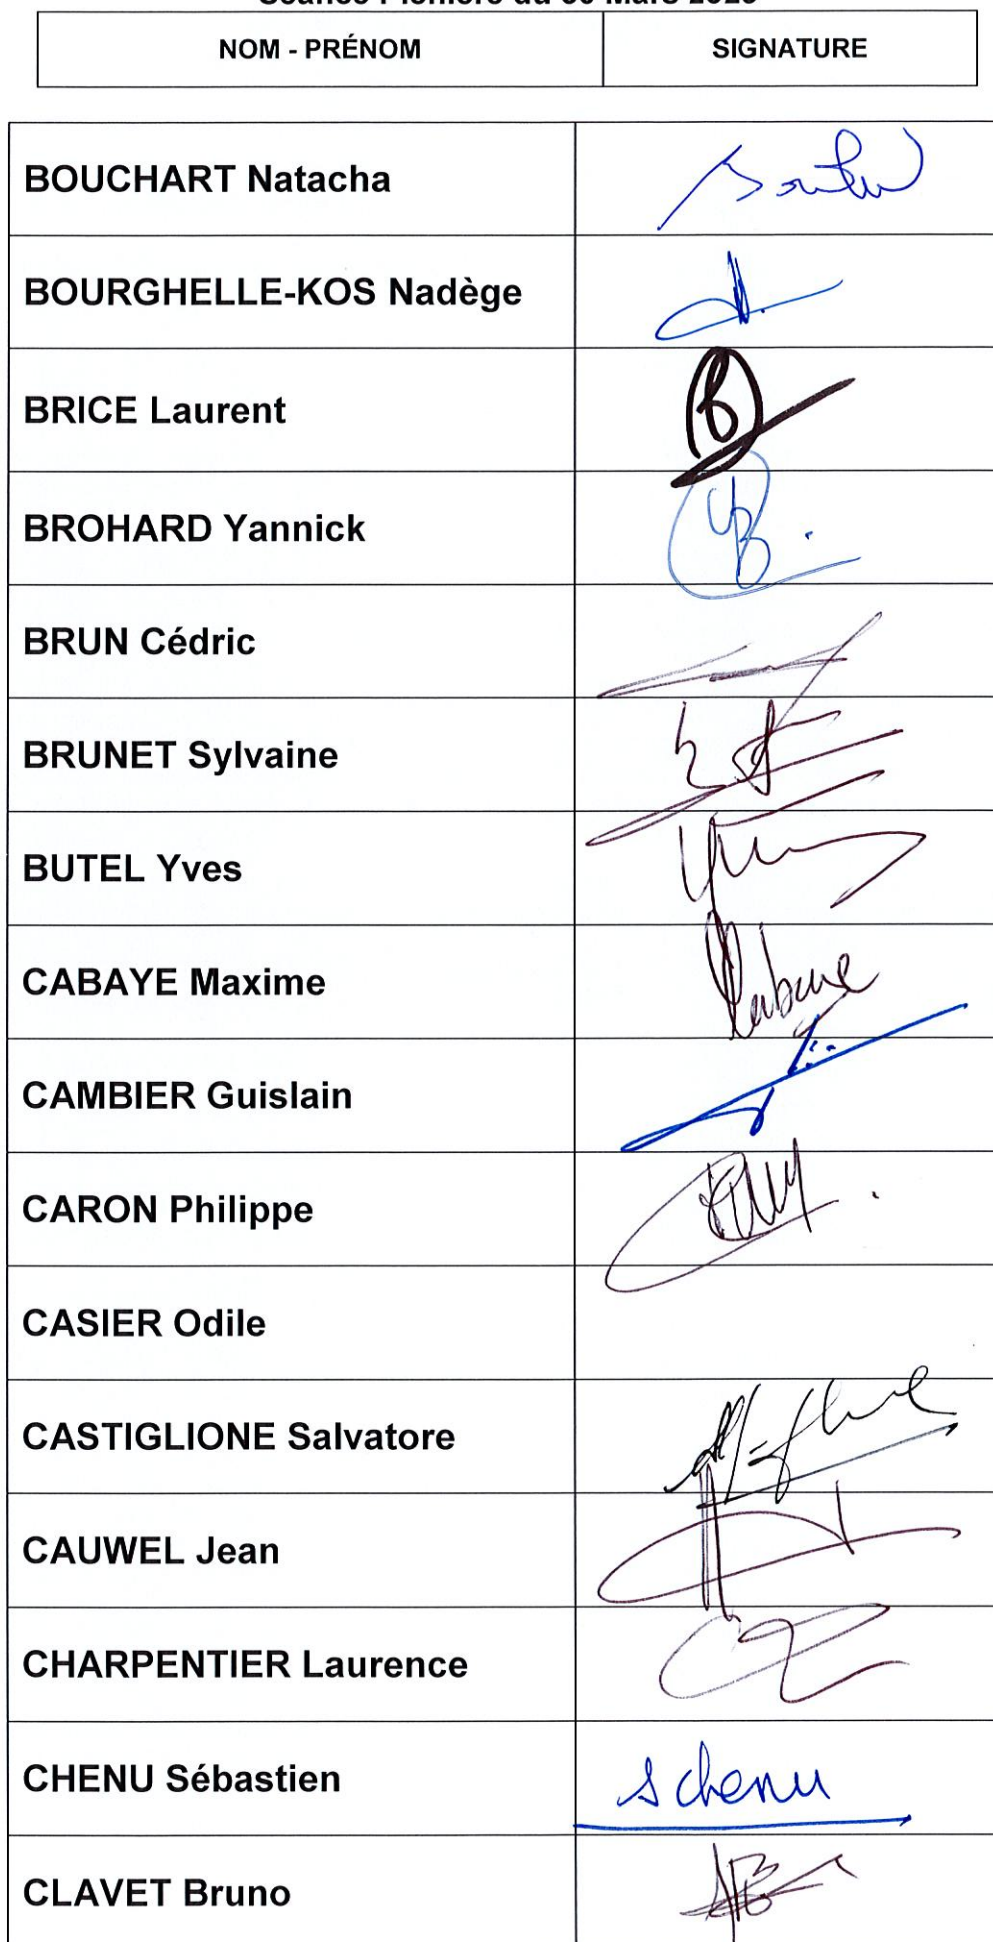 NOM - PRÉNOM SIGNATURE
BOUCHART Natacha
BOURGHELLE-KOS Nadège
BRICE Laurent
BROHARD Yannick
BRUN Cédric
BRUNET Sylvaine
BUTEL Yves
CABAYE Maxime
CAMBIER Guislain
CARON Philippe
CASIER Odile
CASTIGLIONE Salvatore
CAUWEL Jean
CHARPENTIER Laurence
CHENU Sébastien schenu
CLAVET Bruno